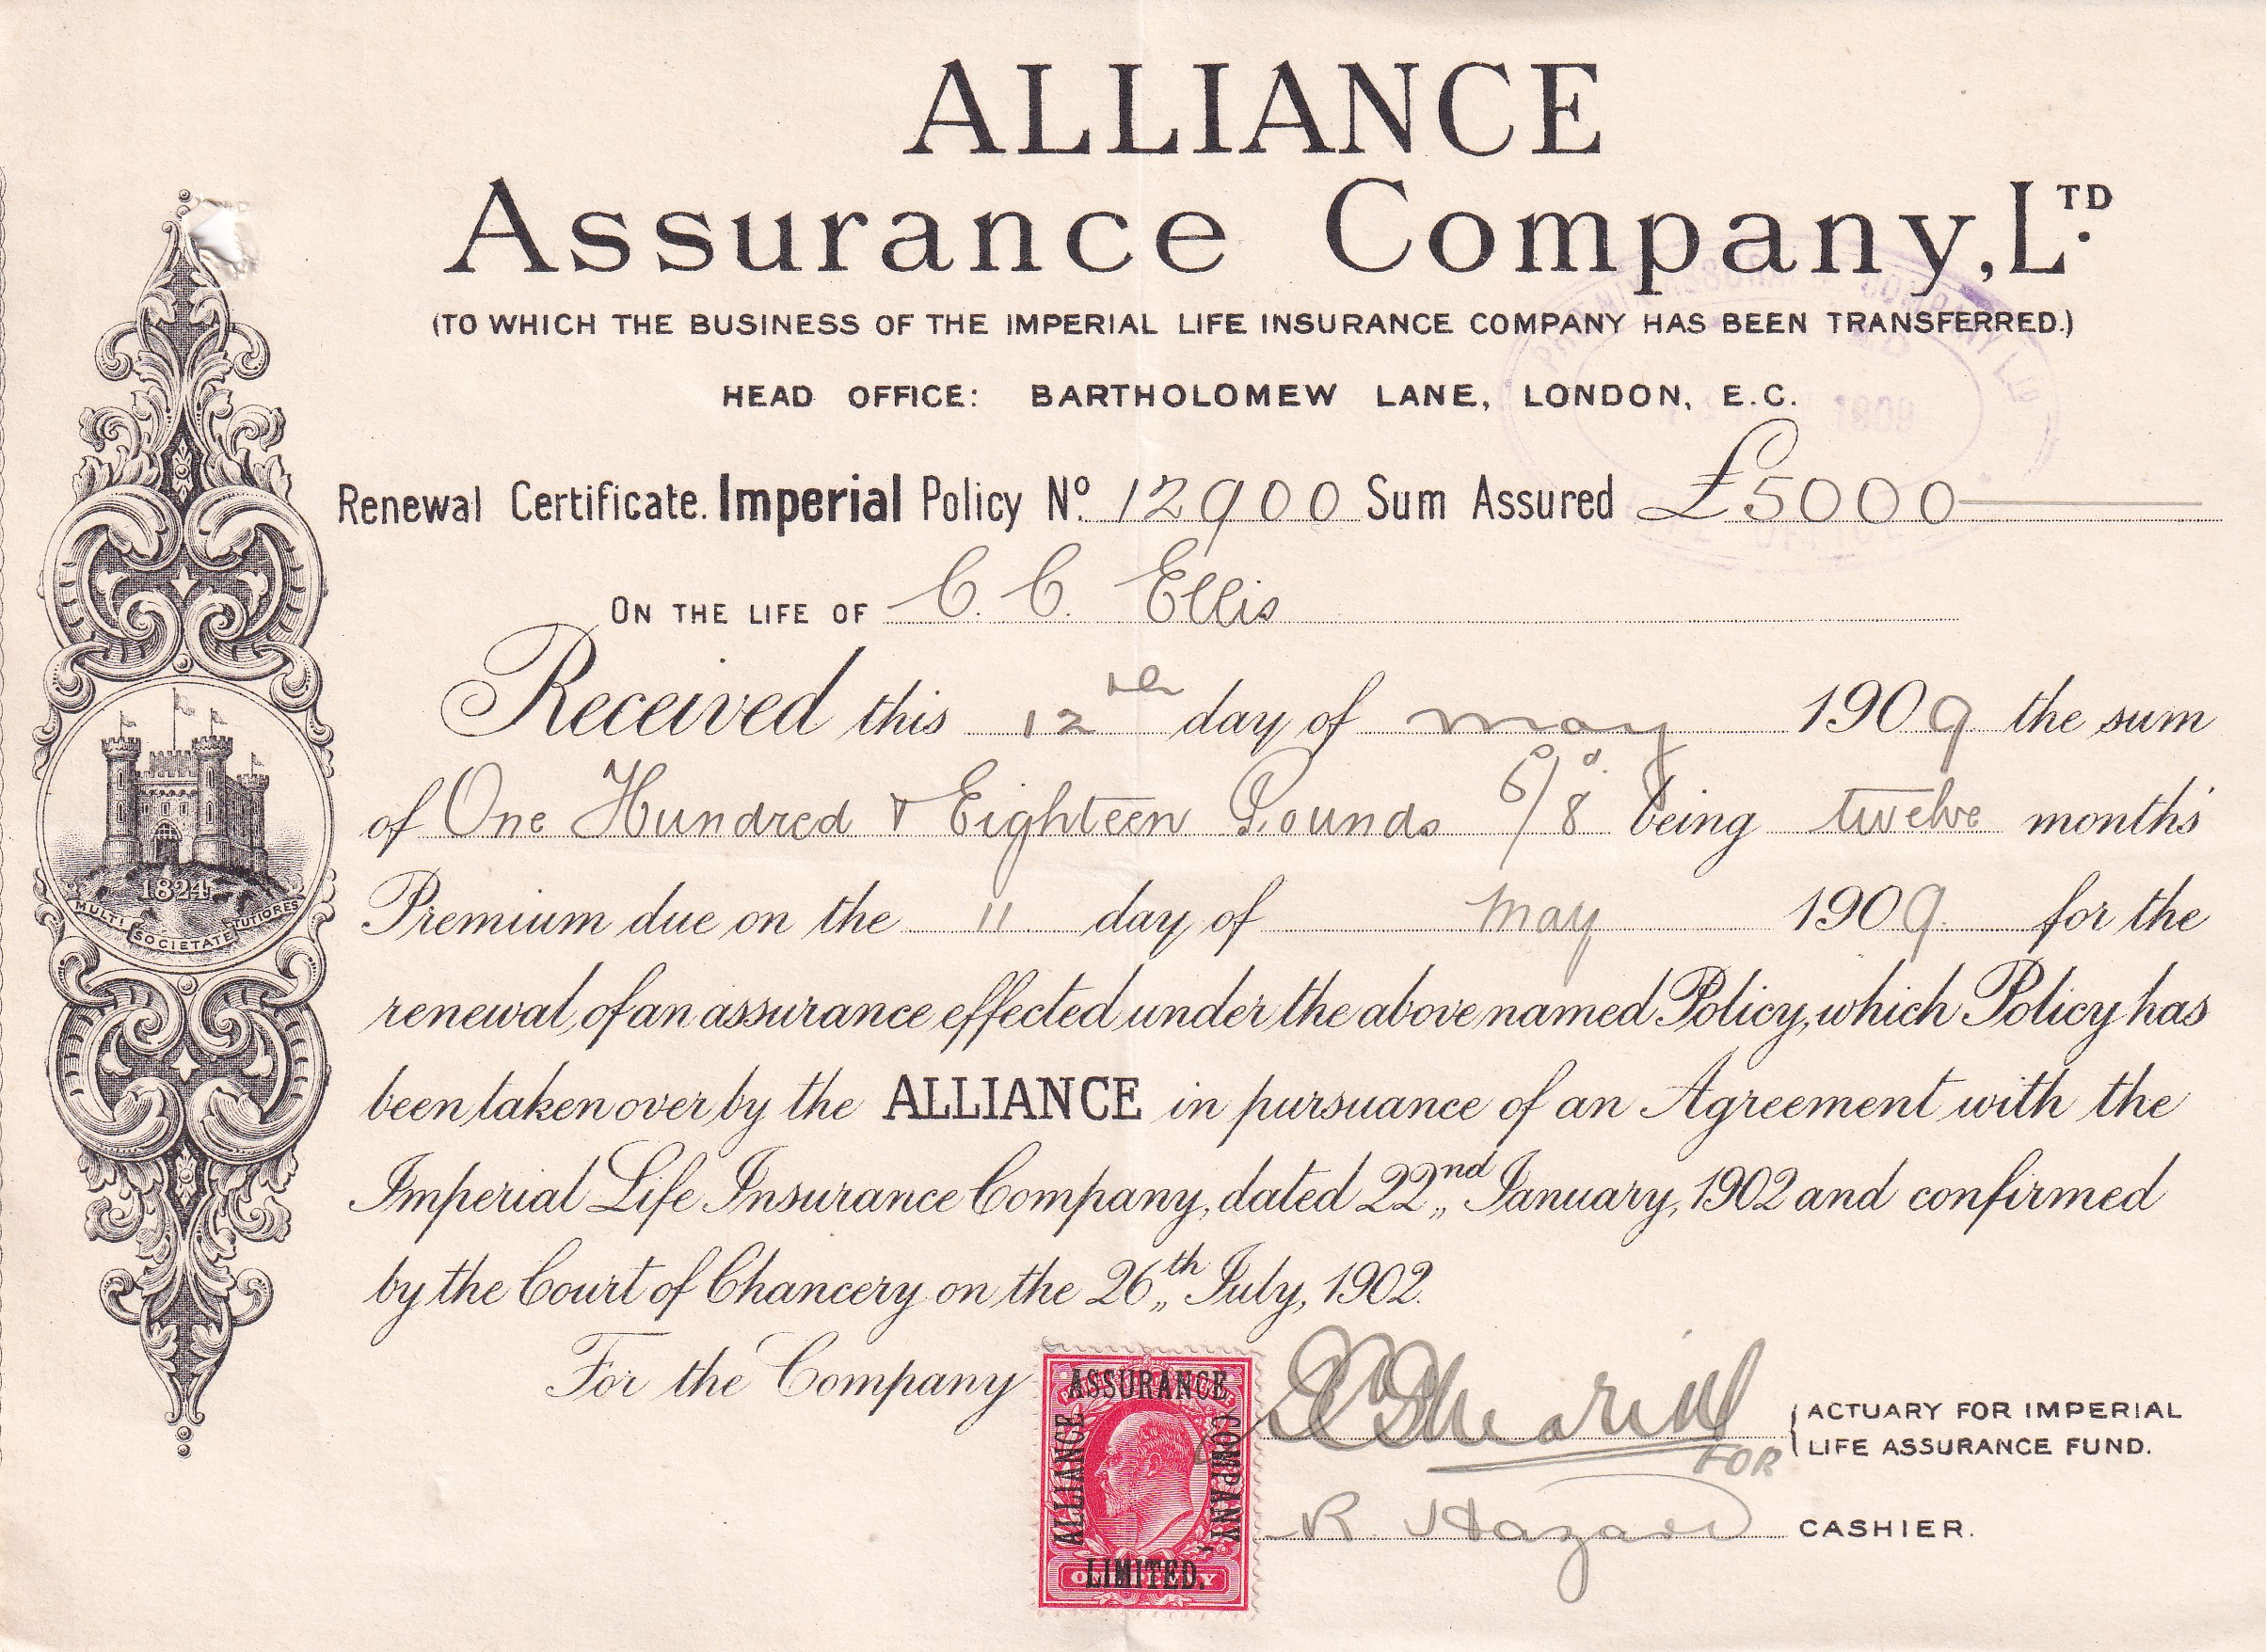 ALLIANCE
Assurance Company, LTD.
(TO WHICH THE BUSINESS OF THE IMPERIAL LIFE INSURANCE COMPANY HAS BEEN TRANSFERRED.)
HEAD OFFICE: BARTHOLOMEW LANE, LONDON, E.C.
1909
Renewal Certificate. Imperial Policy No. 12900 Sum Assured £5000
ON THE LIFE OF C. C. Ellis
Received this 12th day of May 1909 the sum
of One Hundred & Eighteen Pounds 6/8d. being twelve months'
Premium due on the 11 day of May 1909. for the
renewal, of an assurance effected under the above named Policy, which Policy has
been taken over by the ALLIANCE in pursuance of an Agreement with the
Imperial Life Insurance Company, dated 22nd January, 1902 and confirmed
by the Court of Chancery on the 26th July, 1902.
For the Company
ACTUARY FOR IMPERIAL
LIFE ASSURANCE FUND.
FOR
R. Hazard CASHIER.
ALLIANCE ASSURANCE COMPANY, LIMITED.
1824
MULTI SOCIETATE TUTIORES